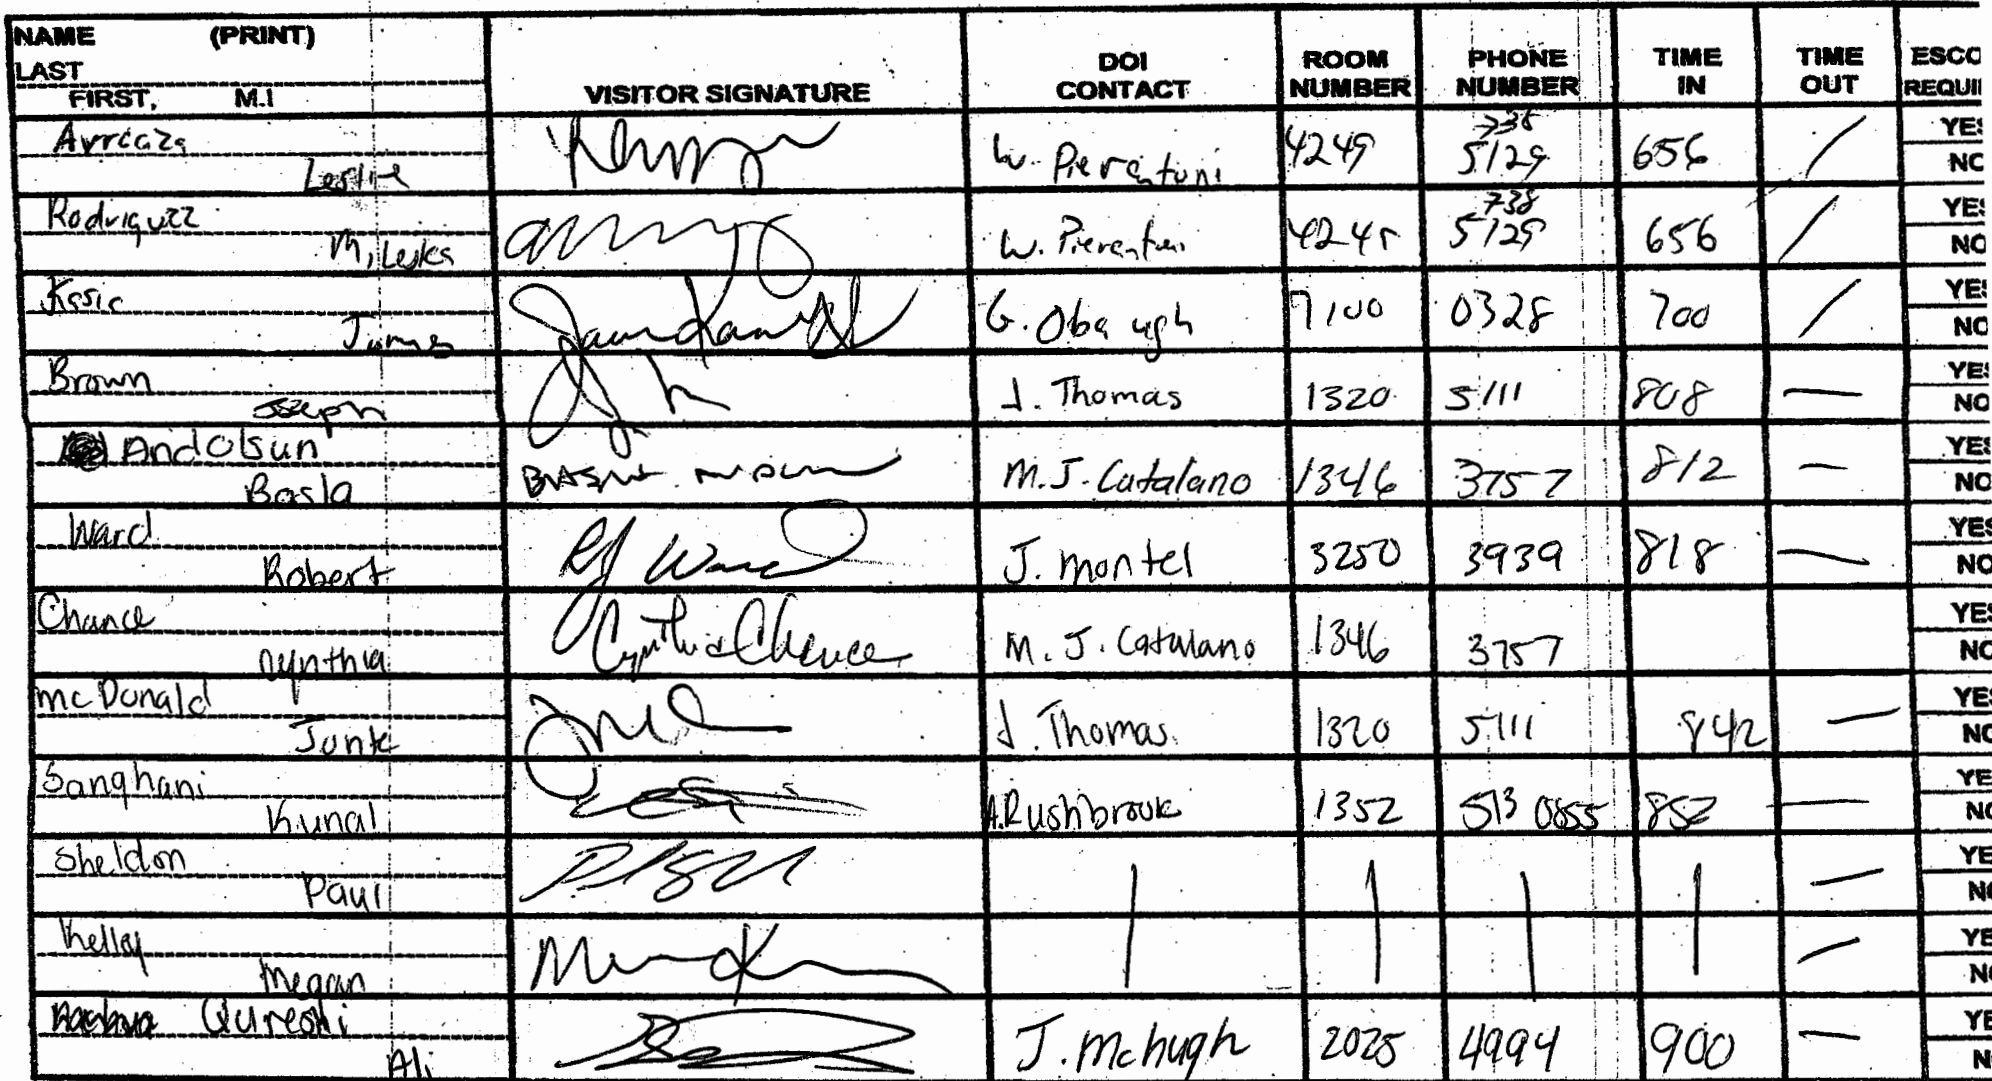 NAME (PRINT)
LAST
FIRST, M.I
VISITOR SIGNATURE
DOI
CONTACT
ROOM
NUMBER
PHONE
NUMBER
TIME
IN
TIME
OUT
ESCO
REQUI
Arreaza
Leslie
W. Pierantoni 4249 738 5129 656 / YES
NO
Rodriguez
W. Pierantoni 738 5129 656 / YES
NO
James
G. Obaugh 7100 0328 700 / YES
NO
Brown
Joseph
J. Thomas 1320 5111 808 — YES
NO
Andolsun
Basla
M.J. Catalano 1346 3757 812 — YES
NO
Ward
Robert
RJ Ward J. Montel 3250 3939 818 — YES
NO
Chance
Cynthia
Cynthia Chance M. J. Catalano 1346 3757 YES
NO
McDonald
J. Thomas 1320 5111 842 — YES
NO
Sanghani
Kunal
A.Rushbrook 1352 513 0855 852 — YE
NO
Sheldon
Paul
| | | | — YE
NO
Kelly
Megan
— YE
NO
Qureshi
Ali
J. McHugh 2025 4994 900 — YE
N